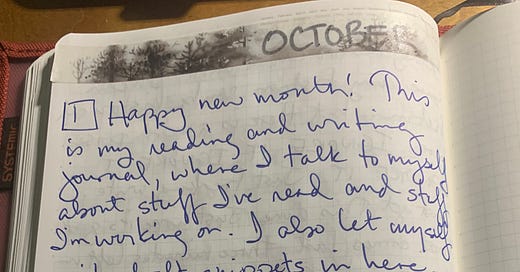 OCTOBER
1 Happy new month! This
is my reading and writing
journal, where I talk to myself
about stuff I've read and stuff
I'm working on. I also let myself
snippets in here
SYSTEMIC